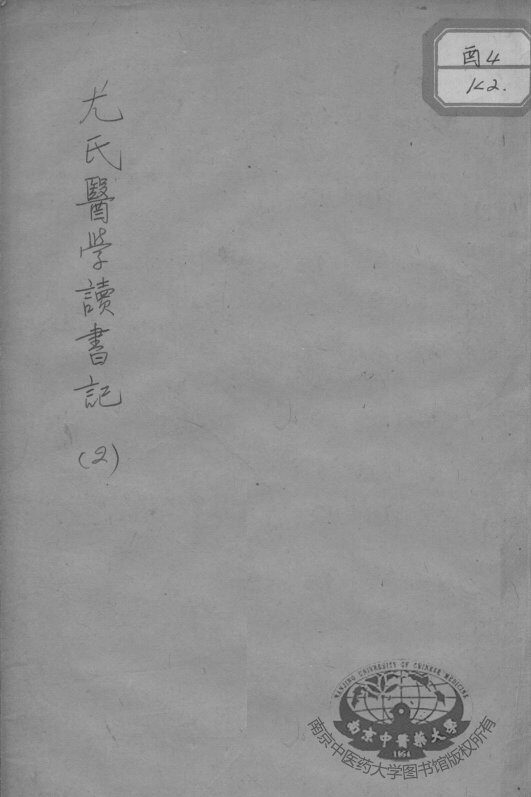 酉4
K2.
尤氏醫学讀書記
(2)
NANJING UNIVERSITY OF CHINESE MEDICINE
南京中醫藥大學
1954
南京中医药大学图书馆版权所有